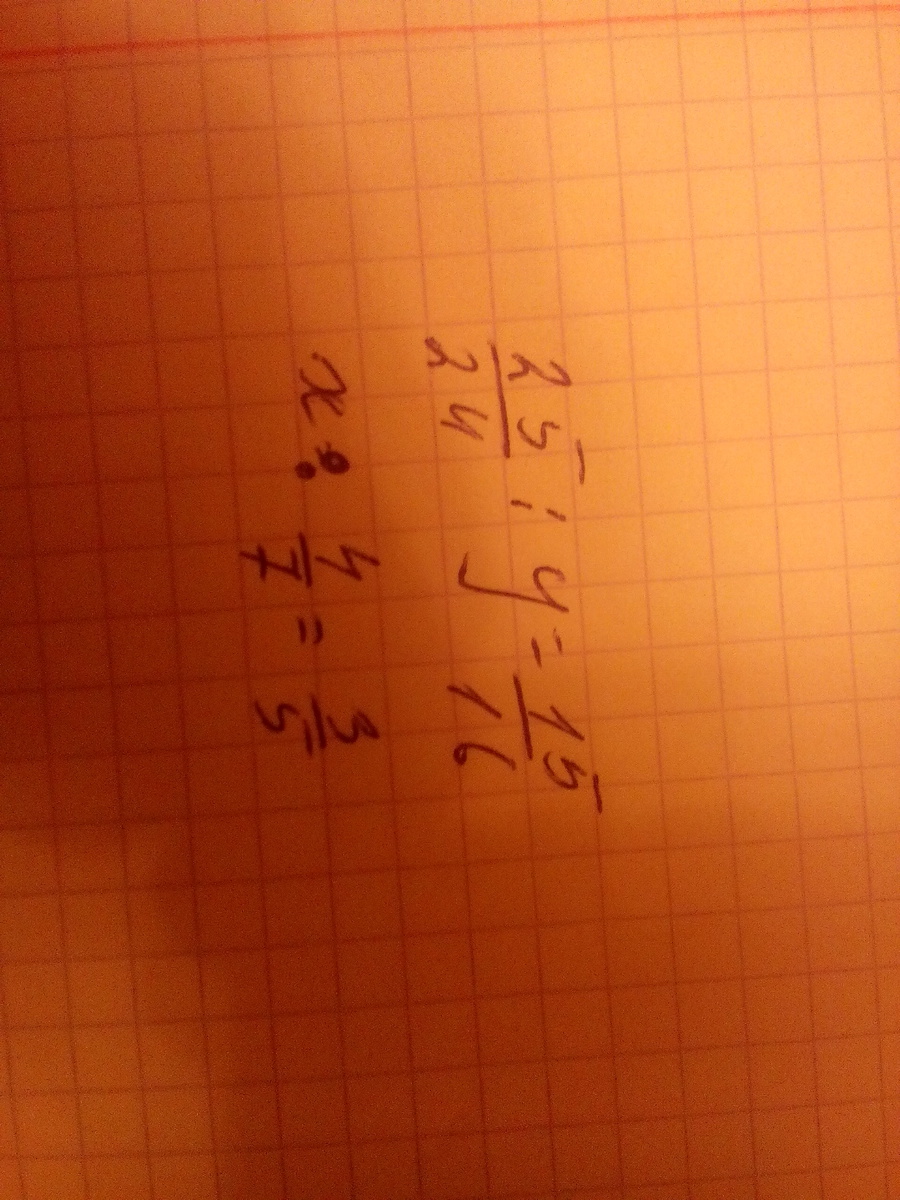 25/24 : y = 15/16
x : 4/7 = 3/5